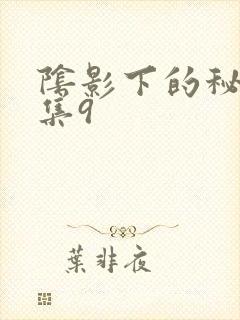 陰影下的秘
集9
葉非夜